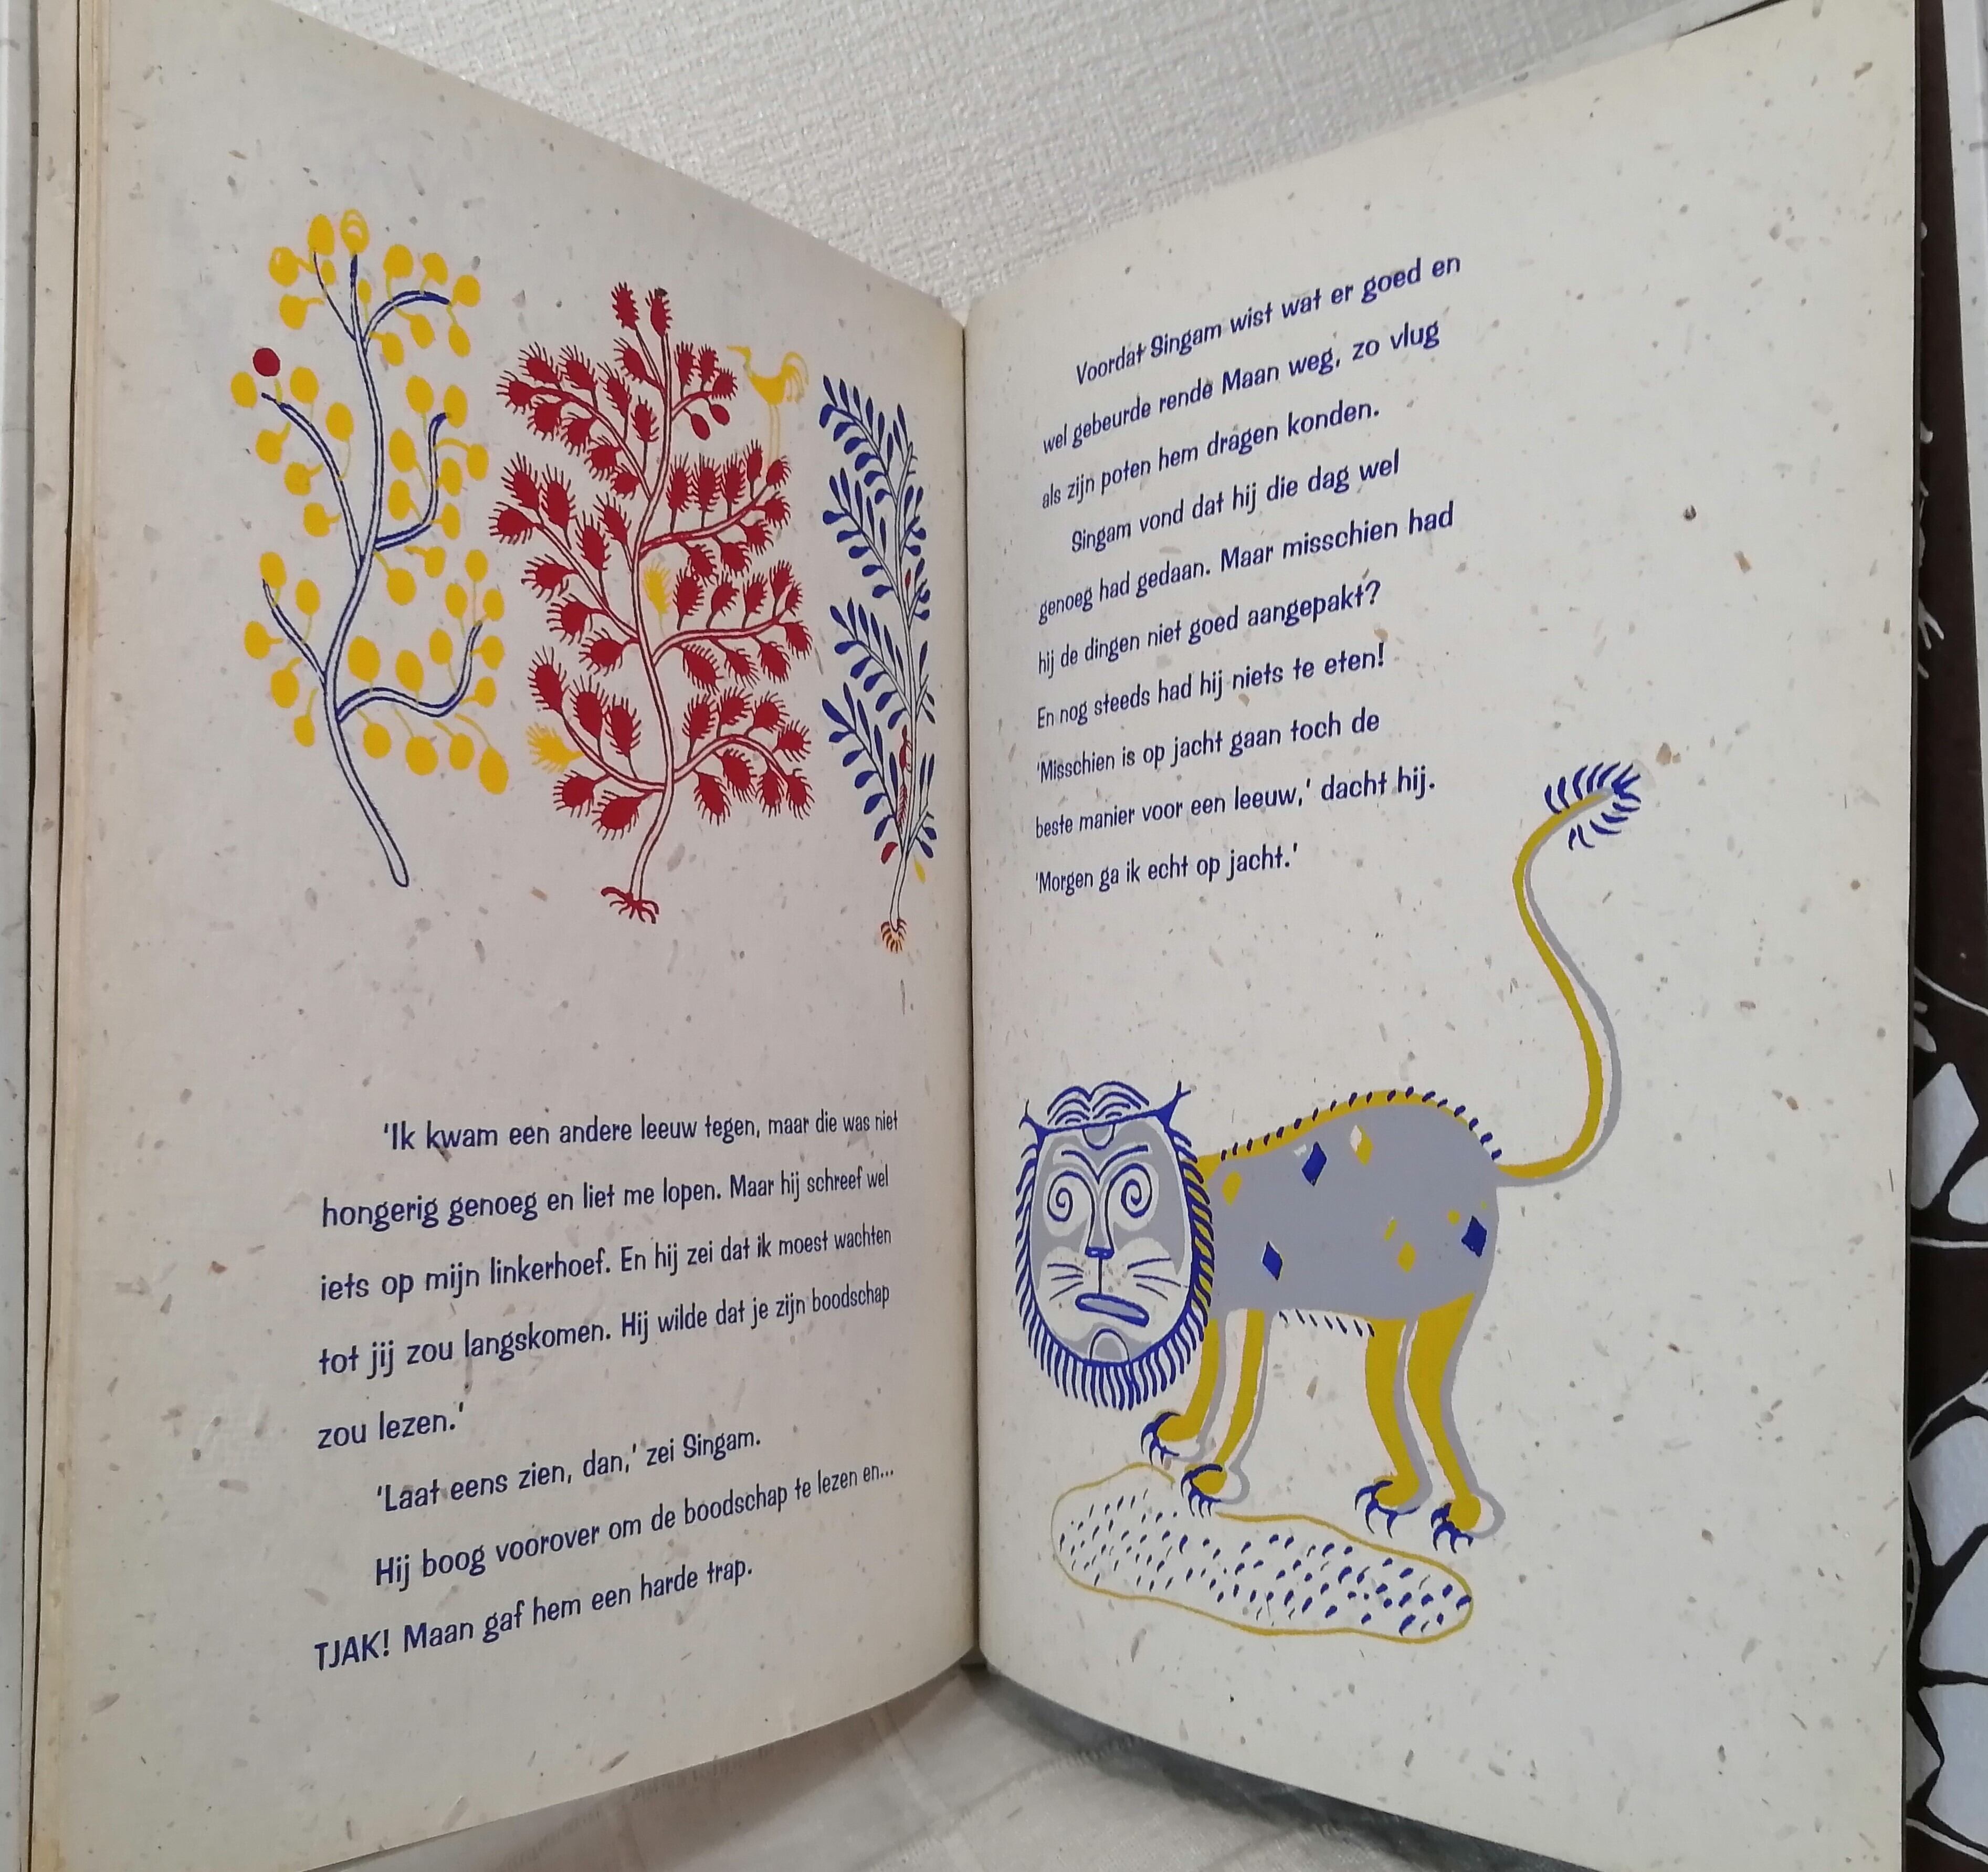 'Ik kwam een andere leeuw tegen, maar die was niet
hongerig genoeg en liet me lopen. Maar hij schreef wel
iets op mijn linkerhoef. En hij zei dat ik moest wachten
tot jij zou langskomen. Hij wilde dat je zijn boodschap
zou lezen.'
'Laat eens zien, dan,' zei Singam.
Hij boog voorover om de boodschap te lezen en...
TJAK! Maan gaf hem een harde trap.
Voordat Singam wist wat er goed en
wel gebeurde rende Maan weg, zo vlug
als zijn poten hem dragen konden.
Singam vond dat hij die dag wel
genoeg had gedaan. Maar misschien had
hij de dingen niet goed aangepakt?
En nog steeds had hij niets te eten!
'Misschien is op jacht gaan toch de
beste manier voor een leeuw,' dacht hij.
'Morgen ga ik echt op jacht.'